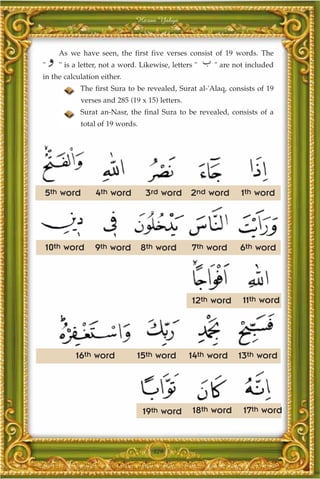 Harun Yahya
As we have seen, the first five verses consist of 19 words. The
"و" is a letter, not a word. Likewise, letters "ب" are not included
in the calculation either.
The first Sura to be revealed, Surat al-'Alaq, consists of 19
verses and 285 (19 x 15) letters.
Surat an-Nasr, the final Sura to be revealed, consists of a
total of 19 words.
إِذَا جَاءَ نَصْرُ اللّٰهِ وَالْفَتْحُ
5th word 4th word 3rd word 2nd word 1th word
وَرَأَيْتَ النَّاسَ يَدْخُلُونَ فِي دِينِ
10th word 9th word 8th word 7th word 6th word
اللّٰهِ أَفْوَاجًا
12th word 11th word
فَسَبِّحْ بِحَمْدِ رَبِّكَ وَاسْتَغْفِرْهُ
16th word 15th word 14th word 13th word
إِنَّهُ كَانَ تَوَّابًا
19th word 18th word 17th word